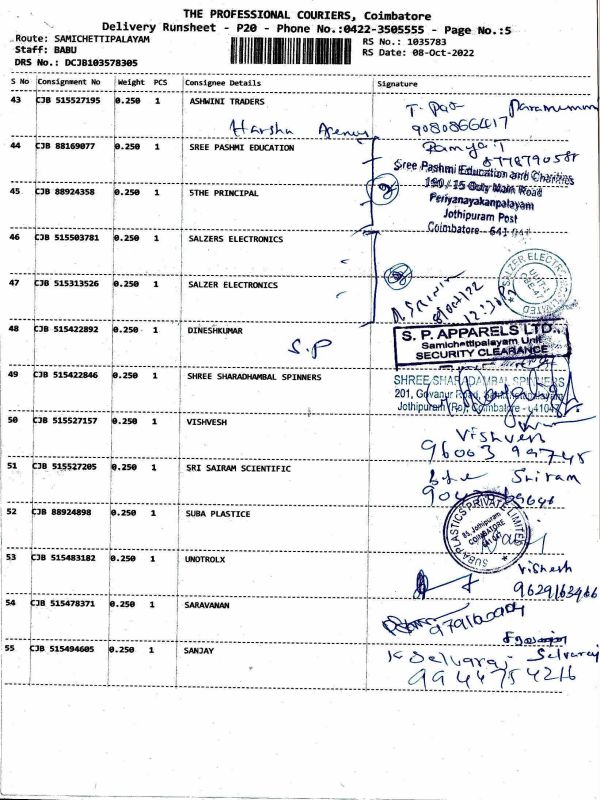 THE PROFESSIONAL COURIERS, Coimbatore
Delivery Runsheet - P20 - Phone No.:0422-3505555 - Page No.:5
Route: SAMICHETTIPALAYAM
RS No.: 1035783
Staff: BABU
RS Date: 08-Oct-2022
DRS No.: DCJB103578305
S No Consignment No Weight PCS Consignee Details Signature
43 CJB 515527195 0.250 1 ASHWINI TRADERS
9080866417
Harsha
44 CJB 88169077 0.250 1 SREE PASHMI EDUCATION
Ramya.T
Sree Pashmi Education and Charities
190 / 15 Ooty Main Road
45 CJB 88924358 0.250 1 5THE PRINCIPAL
Periyanayakanpalayam
Jothipuram Post
Coimbatore - 641 047
46 CJB 515503781 0.250 1 SALZERS ELECTRONICS
SALZER ELECTRONICS LIMITED
UNIT-1
CBE-47
47 CJB 515313526 0.250 1 SALZER ELECTRONICS
48 CJB 515422892 0.250 1 DINESHKUMAR
S.P
S. P. APPARELS LTD.,
Samichettipalayam Unit
SECURITY CLEARANCE
49 CJB 515422846 0.250 1 SHREE SHARADHAMBAL SPINNERS
SHREE SHARADAMBAL SPINNERS
201, Govanur Road,
Jothipuram (Po), Coimbatore - 641047
50 CJB 515527157 0.250 1 VISHVESH
Vishvesh
51 CJB 515527205 0.250 1 SRI SAIRAM SCIENTIFIC
Sriram
52 CJB 88924898 0.250 1 SUBA PLASTICE
SUBA PLASTICS PRIVATE LIMITED
85, Jothipuram
COIMBATORE
53 CJB 515483182 0.250 1 UNOTROLX
Vignesh
9629163466
54 CJB 515478371 0.250 1 SARAVANAN
55 CJB 515494605 0.250 1 SANJAY
K Selvaraj Selvaraj
9944754216